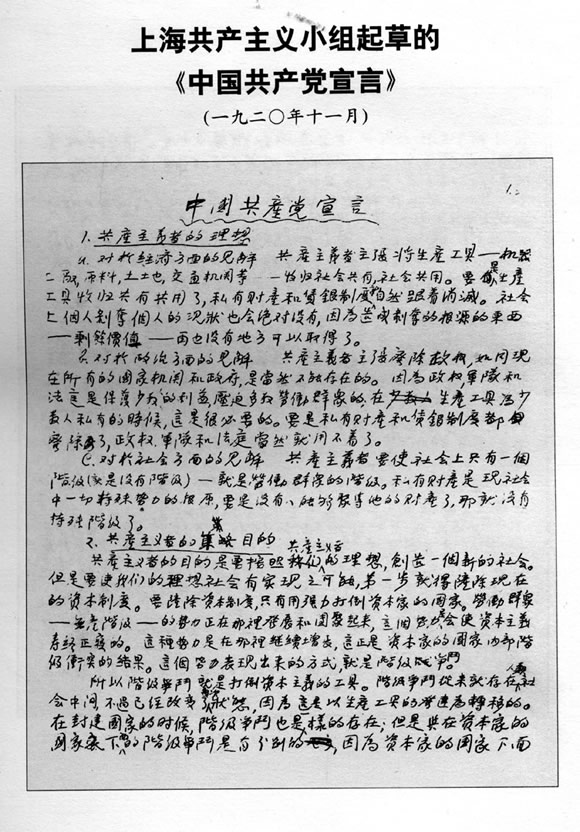 上海共产主义小组起草的
《中国共产党宣言》
(一九二〇年十一月)
1.
中國共產党宣言
1. 共產主義者的理想
a. 对於經济方面的見解 共產主義者主張將生產工具——机器
工厰,原料,土地,交通机関等——收归社会共有,社会共用。要是生產
工具收归共有共用了,私有财產和賃銀制度就自然跟着消滅。社会
上個人剝奪個人的现狀也会绝对没有,因為造成剝奪的根源的東西
——剩餘價值——再也没有地方可以取得了。
b. 对於政治方面的見解 共產主義者主張廢除政权,如同现
在所有的國家机関和政府,是當然不能存在的。因為政权軍隊和
法庭是保護少数的利益,壓迫多数勞働群眾的,在生產工具為少
数人私有的時候,這是很必要的。要是私有财產和賃銀制度都
廢除了,政权、軍隊和法庭當然就用不着了。
c. 对於社会方面的見解 共產主義者要使社会上只有一個
階級(就是没有階級)——就是勞働群眾的階級。私有财產是现社会
中一切特殊势力的根原,要是没有人能够聚集他的财產了,那就没有
特殊階級了。
2. 共產主義者的目的
共產主義者的目的是要按照共產主義者的理想,創造一個新的社会。
但是要使我们的理想社会有实现之可能,第一步就得鏟除现在
的資本制度。要鏟除資本制度,只有用强力打倒資本家的國家。勞働群眾
——無產階級——的势力正在那裡發展和團聚起來,這個势力会使資本主義
壽終正寢的。這種势力是在那裡继续增長,這正是資本家的國家内部階
級衝突的結果。這個势力表现出來的方式,就是階級爭鬥。
所以階級爭鬥就是打倒資本主義的工具。階級爭鬥從來就存在人類社
会中間,不過已经改变狀態,因為這是以生產工具的發達為轉移的。
在封建國家的时候,階級爭鬥也是一樣的存在;但是與在資本家的
國家裹下的階級爭鬥是有分别的,因為資本家的國家下面